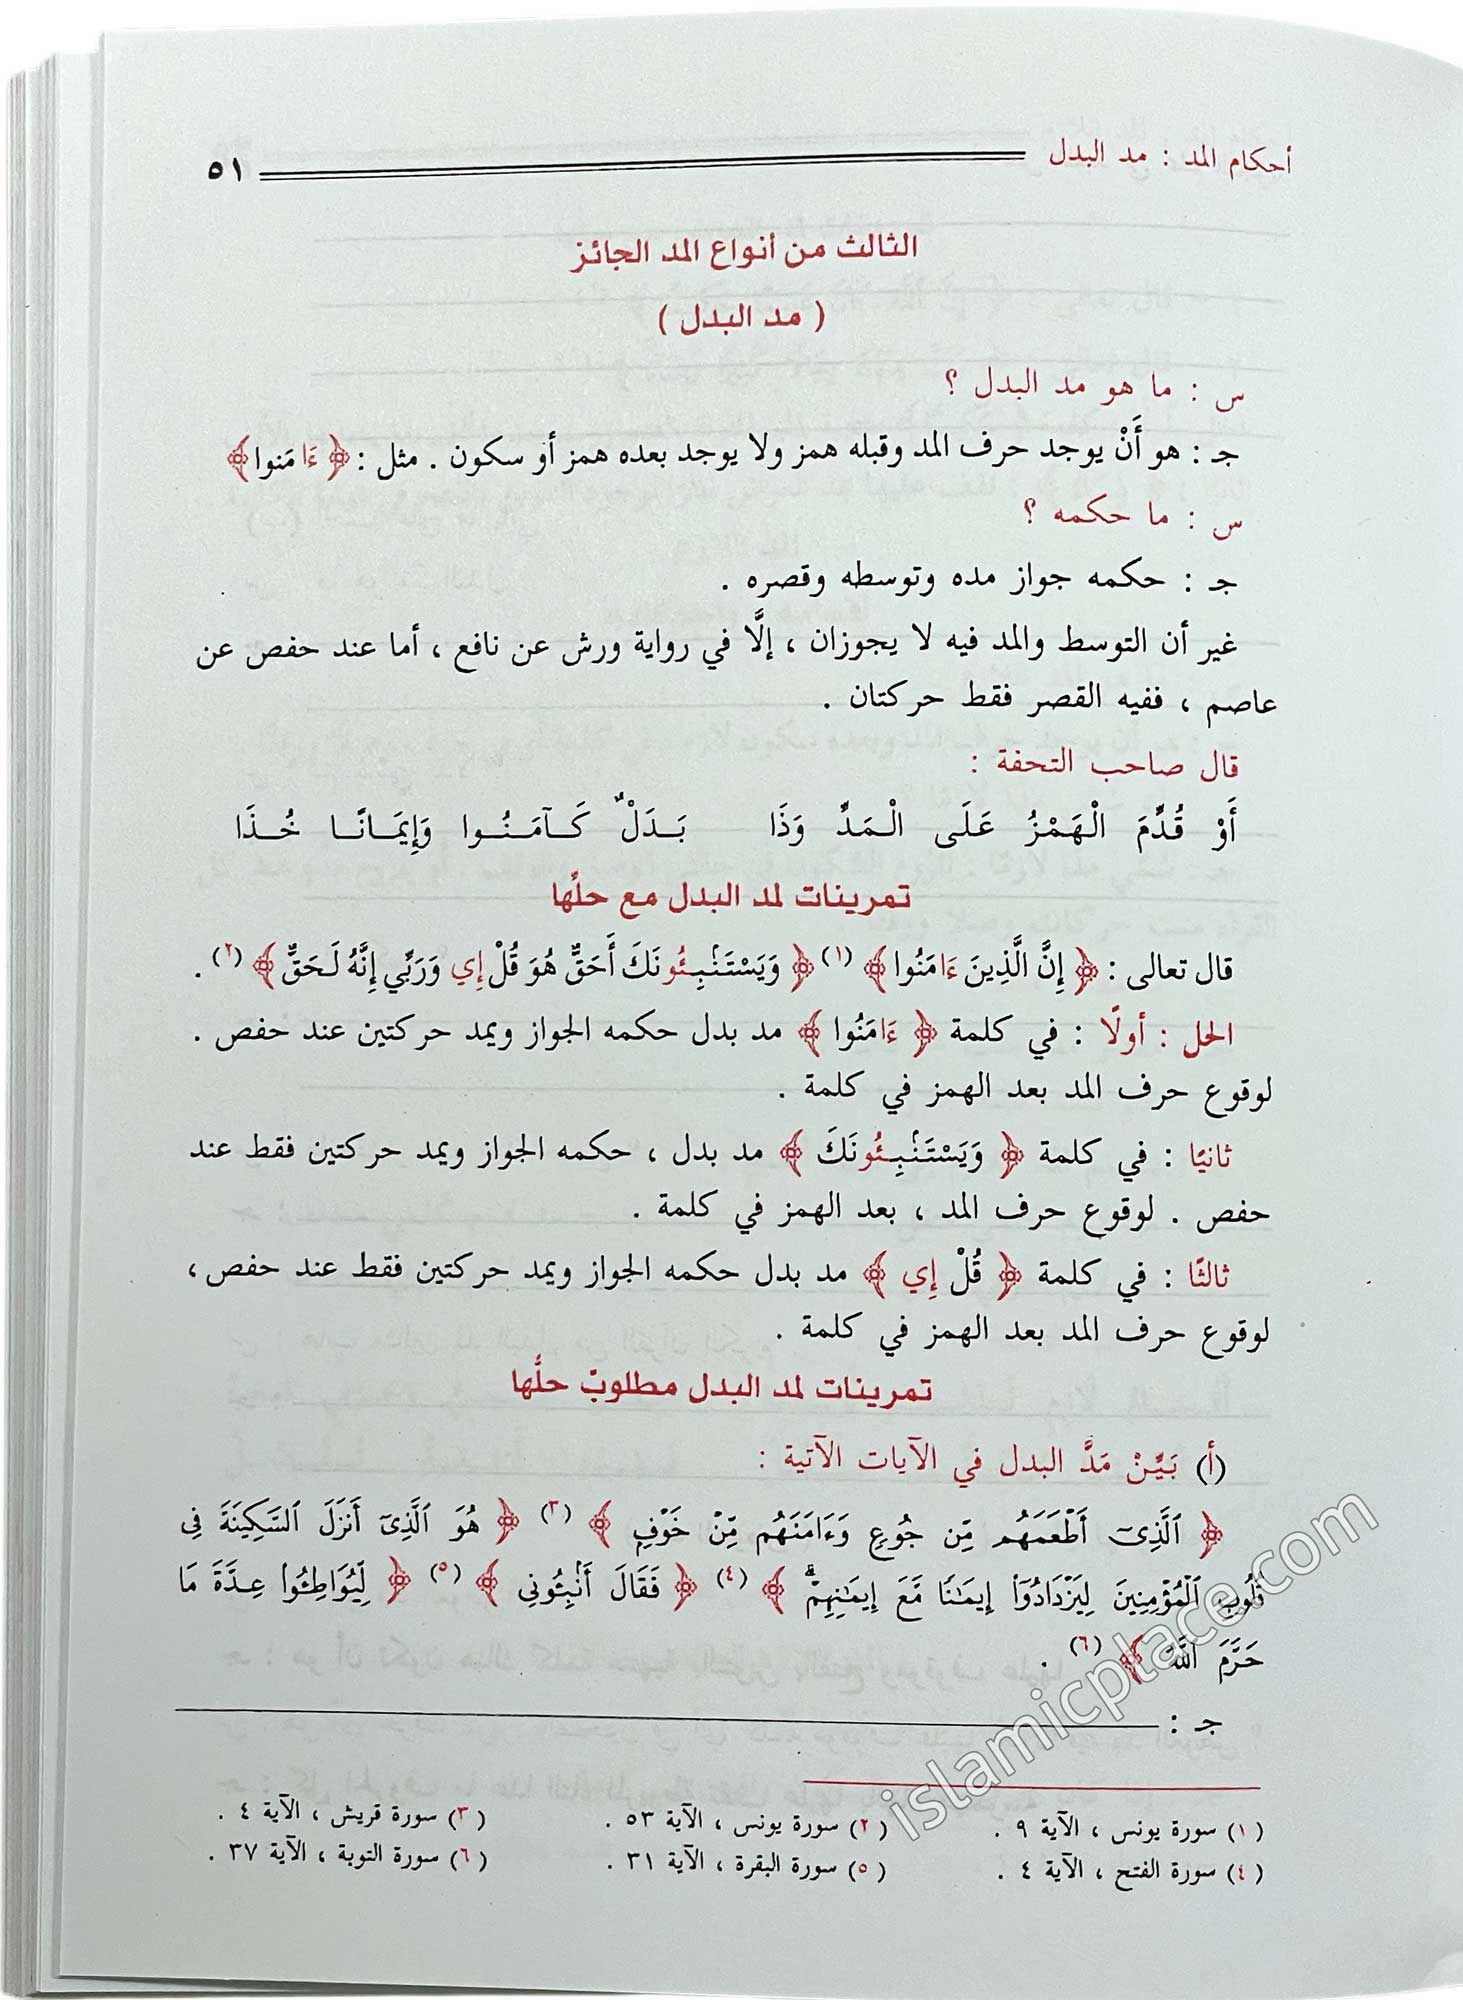 أحكام المد : مد البدل ٥١
الثالث من أنواع المد الجائز
( مد البدل )
س : ما هو مد البدل ؟
جـ : هو أَنْ يوجد حرف المد وقبله همز ولا يوجد بعده همز أو سكون . مثل : ﴿ ءَا مَنوا ﴾
س : ما حكمه ؟
جـ : حكمه جواز مده وتوسطه وقصره .
غير أن التوسط والمد فيه لا يجوزان ، إلَّا في رواية ورش عن نافع ، أما عند حفص عن
عاصم ، ففيه القصر فقط حركتان .
قال صاحب التحفة :
أَوْ قُدِّمَ الْهَمْزُ عَلَى الْمَدِّ وَذَا بَدَلْ كَآمَنُوا وَإِيمَانًا خُذَا
تمرينات لمد البدل مع حلِّها
قال تعالى : ﴿ إِنَّ الَّذِينَ ءَامَنُوا ﴾ (١) ﴿ وَيَسْتَنۢبِـُٔونَكَ أَحَقٌّ هُوَ قُلْ إِي وَرَبِّي إِنَّهُ لَحَقٌّ ﴾ (٢) .
الحل : أولًا : في كلمة ﴿ ءَامَنُوا ﴾ مد بدل حكمه الجواز ويمد حركتين عند حفص .
لوقوع حرف المد بعد الهمز في كلمة .
ثانيًا : في كلمة ﴿ وَيَسْتَنۢبِـُٔونَكَ ﴾ مد بدل ، حكمه الجواز ويمد حركتين فقط عند
حفص . لوقوع حرف المد ، بعد الهمز في كلمة .
ثالثًا : في كلمة ﴿ قُلْ إِي ﴾ مد بدل حكمه الجواز ويمد حركتين فقط عند حفص ،
لوقوع حرف المد بعد الهمز في كلمة .
تمرينات لمد البدل مطلوبٌ حلُّها
(أ) بَيِّنْ مَدَّ البدل في الآيات الآتية :
﴿ ٱلَّذِىٓ أَطْعَمَهُم مِّن جُوعٍ وَءَامَنَهُم مِّنْ خَوْفٍ ﴾ (٣) ﴿ هُوَ ٱلَّذِىٓ أَنزَلَ ٱلسَّكِينَةَ فِى
قُلُوبِ ٱلْمُؤْمِنِينَ لِيَزْدَادُوٓا۟ إِيمَٰنًا مَّعَ إِيمَٰنِهِمْ ۗ ﴾ (٤) ﴿ فَقَالَ أَنۢبِـُٔونِى ﴾ (٥) ﴿ لِّيُوَاطِـُٔوا۟ عِدَّةَ مَا
حَرَّمَ ٱللَّهُ ﴾ (٦) .
جـ :
(١) سورة يونس ، الآية ٩ . (٢) سورة يونس ، الآية ٥٣ . (٣) سورة قريش ، الآية ٤ .
(٤) سورة الفتح ، الآية ٤ . (٥) سورة البقرة ، الآية ٣١ . (٦) سورة التوبة ، الآية ٣٧ .
islamicplace.com